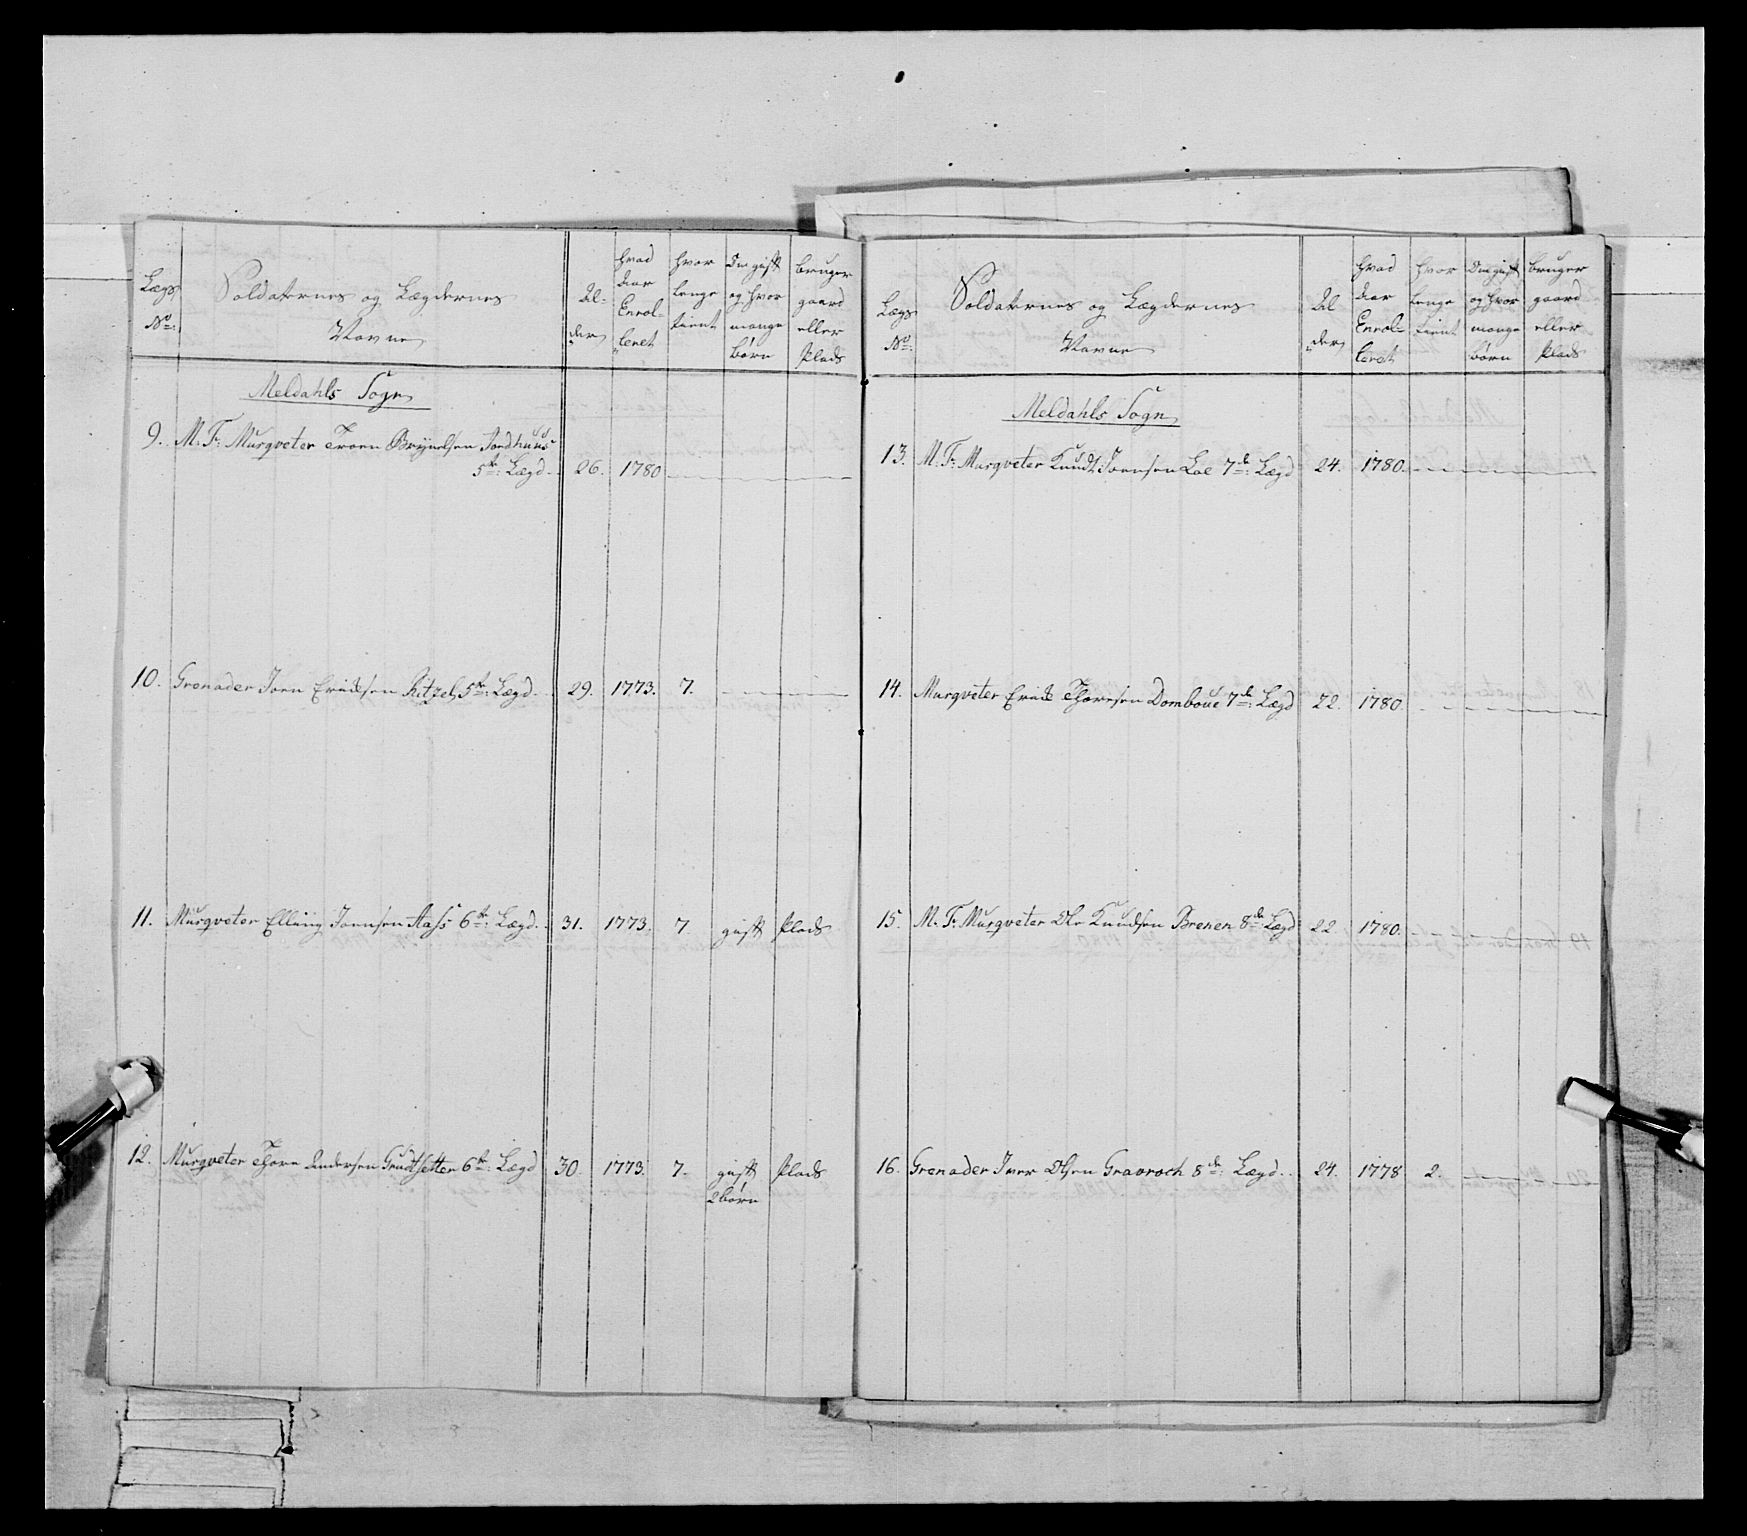 Lægs No: Soldaternes og Lægdernes Navne Al- der hvad Aar Enrol- leret hvor lenge tient Om gift og hvor mange børn bruger gaard eller Plads
Meldahls Sogn
9. M. Fr: Musqveter Troen Brynelsen Jordhuus
5te Lægd. 26. 1780
10. Grenader Joen Ericksen Ritzel, 5te Lægd. 29. 1773. 7.
11. Musqveter Elling Joensen Aass 6te Lægd. 31. 1773. 7 gift Plads
12. Musqveter Thore Andersen Grudtsetter 6te Lægd 30. 1773. 7. gift Plads
2 børn
Lægs No: Soldaternes og Lægdernes Navne Al der hvad Aar Enrol- leret hvor lenge tient Om gift og hvor mange børn bruger gaard eller Plads
Meldahls Sogn
13. M. Fr: Musqveter Knudt Joensen Loe 7de Lægd 24. 1780.
14. Musqveter Erick Thoresen Domboue 7de Lægd 22. 1780.
15. M. Fr: Musqveter Ole Knudsen Brenen 8de Lægd 22 1780.
16. Grenader Iver Olsen Gravroch 8de Lægd. 24. 1778 2.